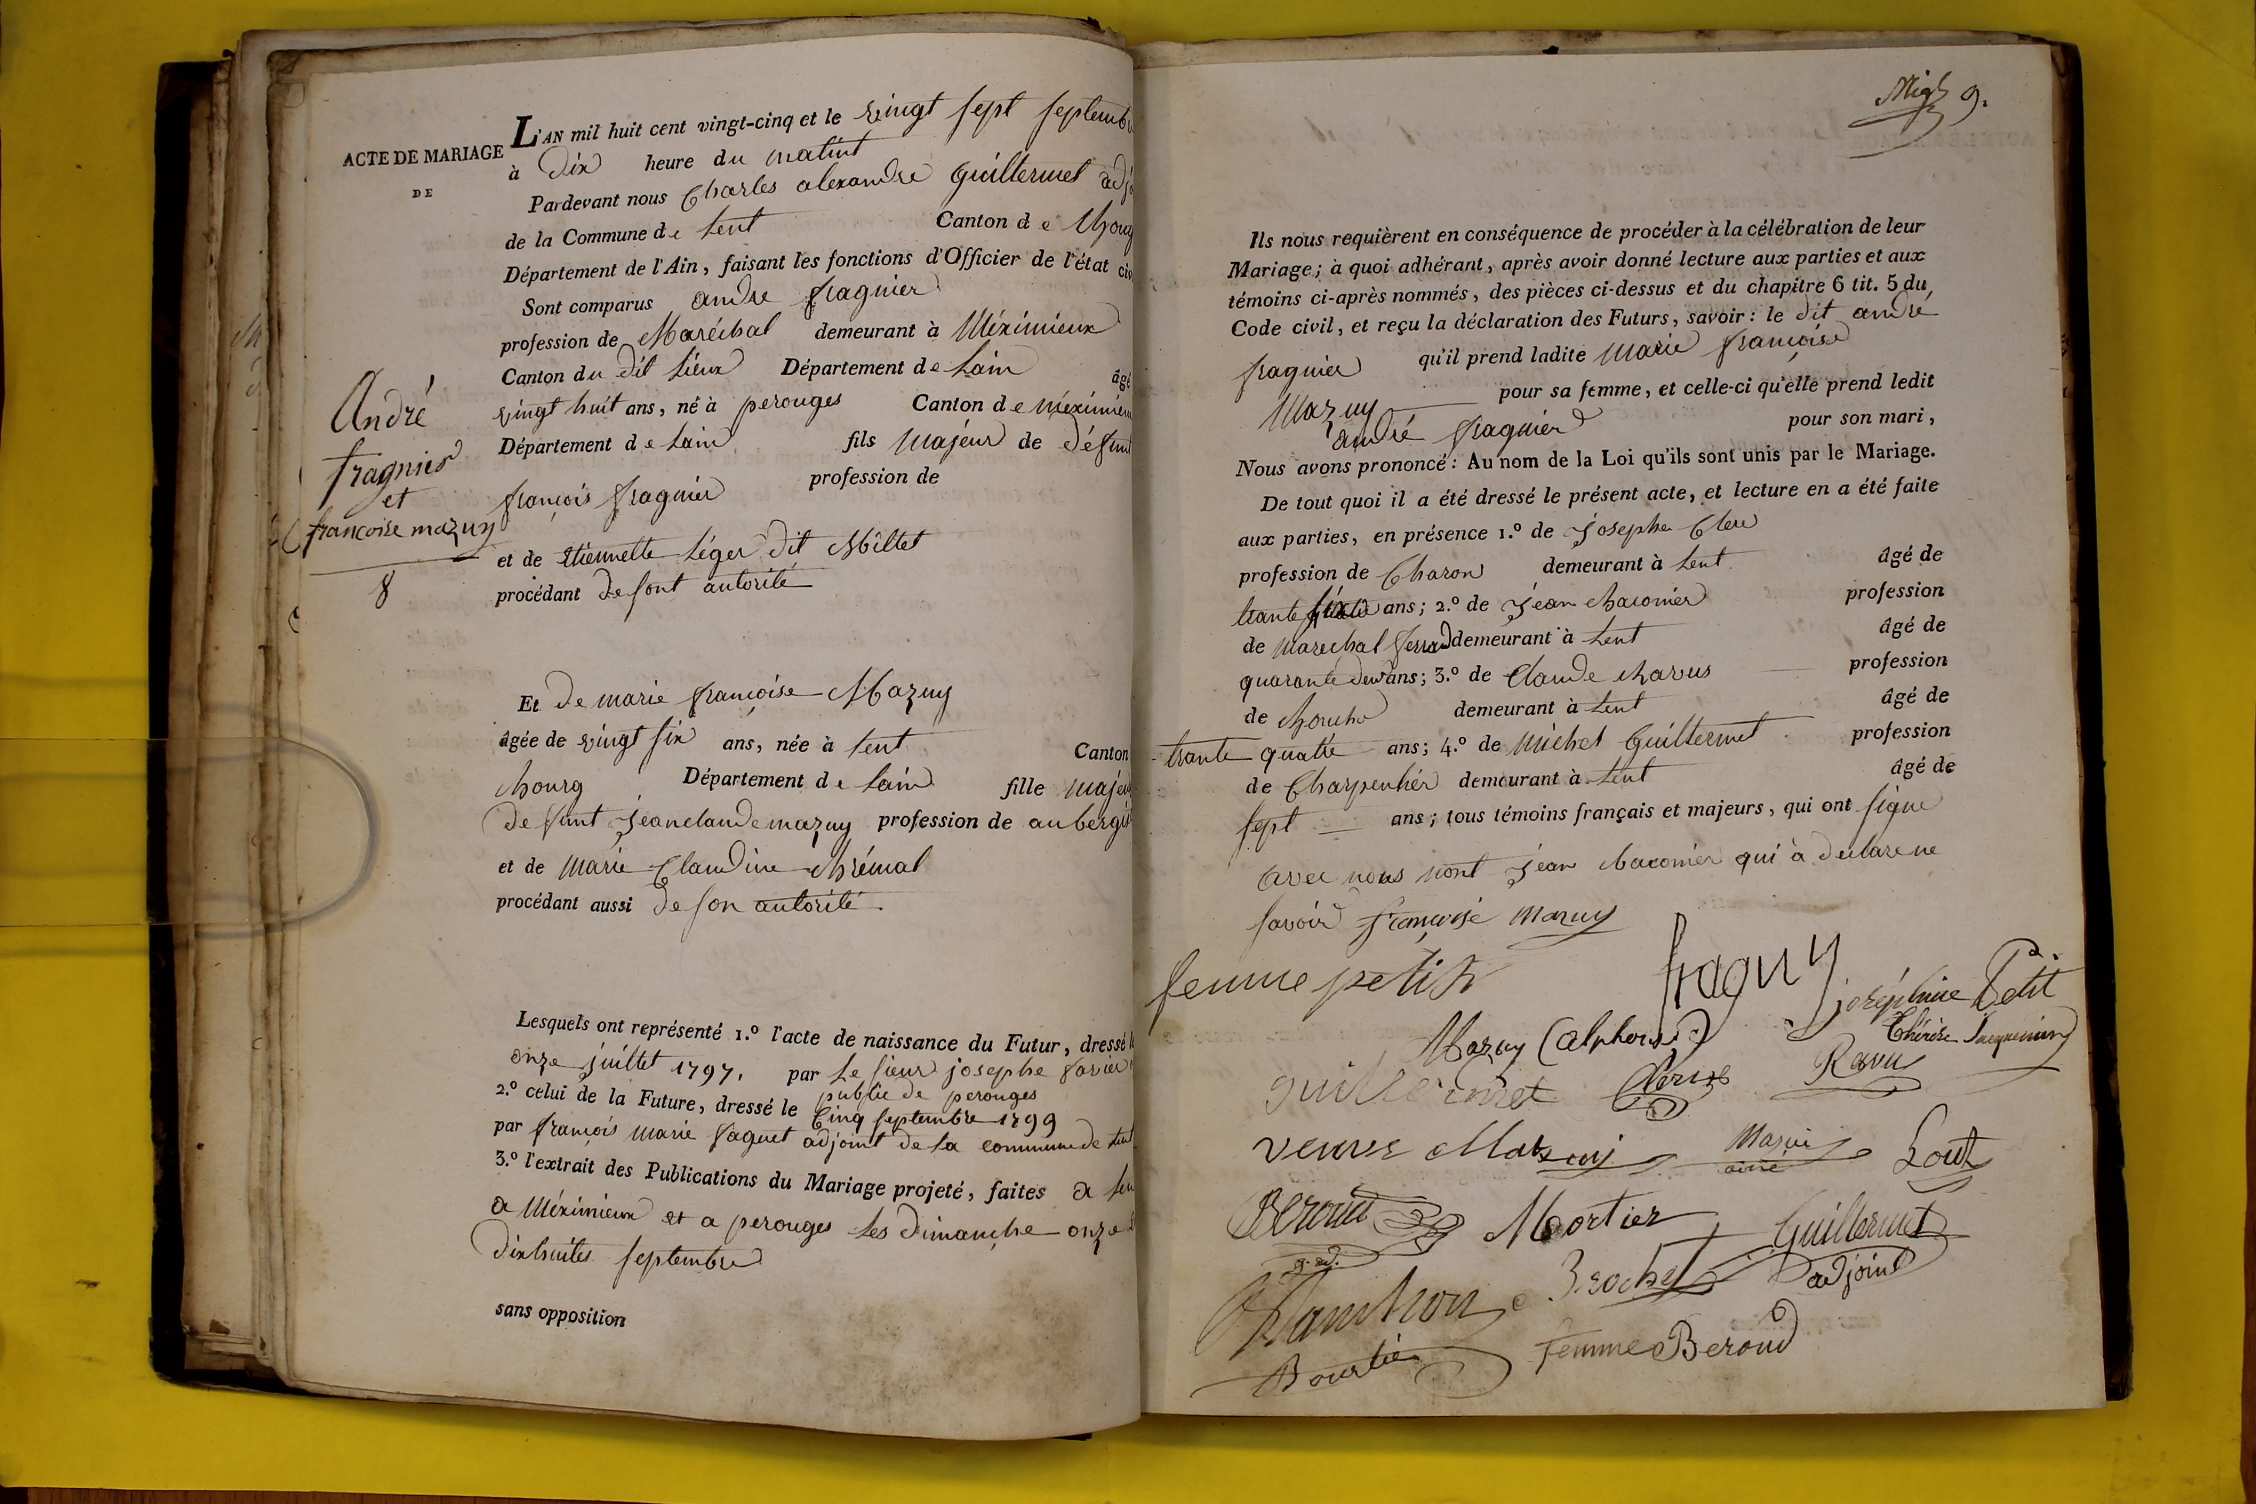 ACTE DE MARIAGE
DE
André
fragnier
et
françoise mazuy
8
L'AN mil huit cent vingt-cinq et le vingt sept septemb
à Dix heure du matint
Pardevant nous Charles alexandre guillermet adj
de la Commune de Lent Canton de
Département de l'Ain, faisant les fonctions d'Officier de l'état civ
Sont comparus andre fragnier
profession de Maréchal demeurant à Méximieux
Canton du dit Lieux Département de Lain âgé
vingt huit ans, né à perouges Canton de méximieu
Département de Lain fils Majeur de défunt
françois fragnier profession de
et de Etiennette Léger dit Miltet
procédant de sont autorité
Et de marie françoise Mazuy
âgée de vingt six ans, née à Lent Canton
bourg Département de Lain fille Majeu
defunt Jeanclaude mazuy profession de aubergis
et de Marie Claudine
procédant aussi de son autorité
Lesquels ont représenté 1.º l'acte de naissance du Futur, dressé l
onze juillet 1797, par Le sieur josephe
publie de perouges
2.º celui de la Future, dressé le Cinq septembre 1799
par françois Marie adjoint de La commune de Lent
3.º l'extrait des Publications du Mariage projeté, faites a Len
a Méximieux et a perouges Les dimanche onze
dixhuites septembre
sans opposition
9.
Ils nous requièrent en conséquence de procéder à la célébration de leur
Mariage; à quoi adhérant, après avoir donné lecture aux parties et aux
témoins ci-après nommés, des pièces ci-dessus et du chapitre 6 tit. 5 du
Code civil, et reçu la déclaration des Futurs, savoir: le dit andré
fragnier qu'il prend ladite Marie françoise
Mazuy pour sa femme, et celle-ci qu'elle prend ledit
andré fragnier pour son mari,
Nous avons prononcé: Au nom de la Loi qu'ils sont unis par le Mariage.
De tout quoi il a été dressé le présent acte, et lecture en a été faite
aux parties, en présence 1.º de Josephe Clerc
profession de Charon demeurant à Lent âgé de
trante six ans; 2.º de Jean chaconier profession
de Marechal ferrand demeurant à Lent âgé de
quarante deux ans; 3.º de Claude profession
de demeurant à Lent âgé de
trante quatre ans; 4.º de Michel Guillermet profession
de Charpentier demeurant à Lent âgé de
sept ans; tous témoins français et majeurs, qui ont signe
avec nous nont Jean chaconier qui à declare ne
savoir françoise Mazuy
femme petit fragny joséphine Petit
Mazuy (alphonse) Thérèse Jacquemin
guillermet Clerc Ravu
veuve Mazuy Mazui ainé
Beroud Mortier Guillermet
adjoint
Brochet
Bourlie femme Beroud